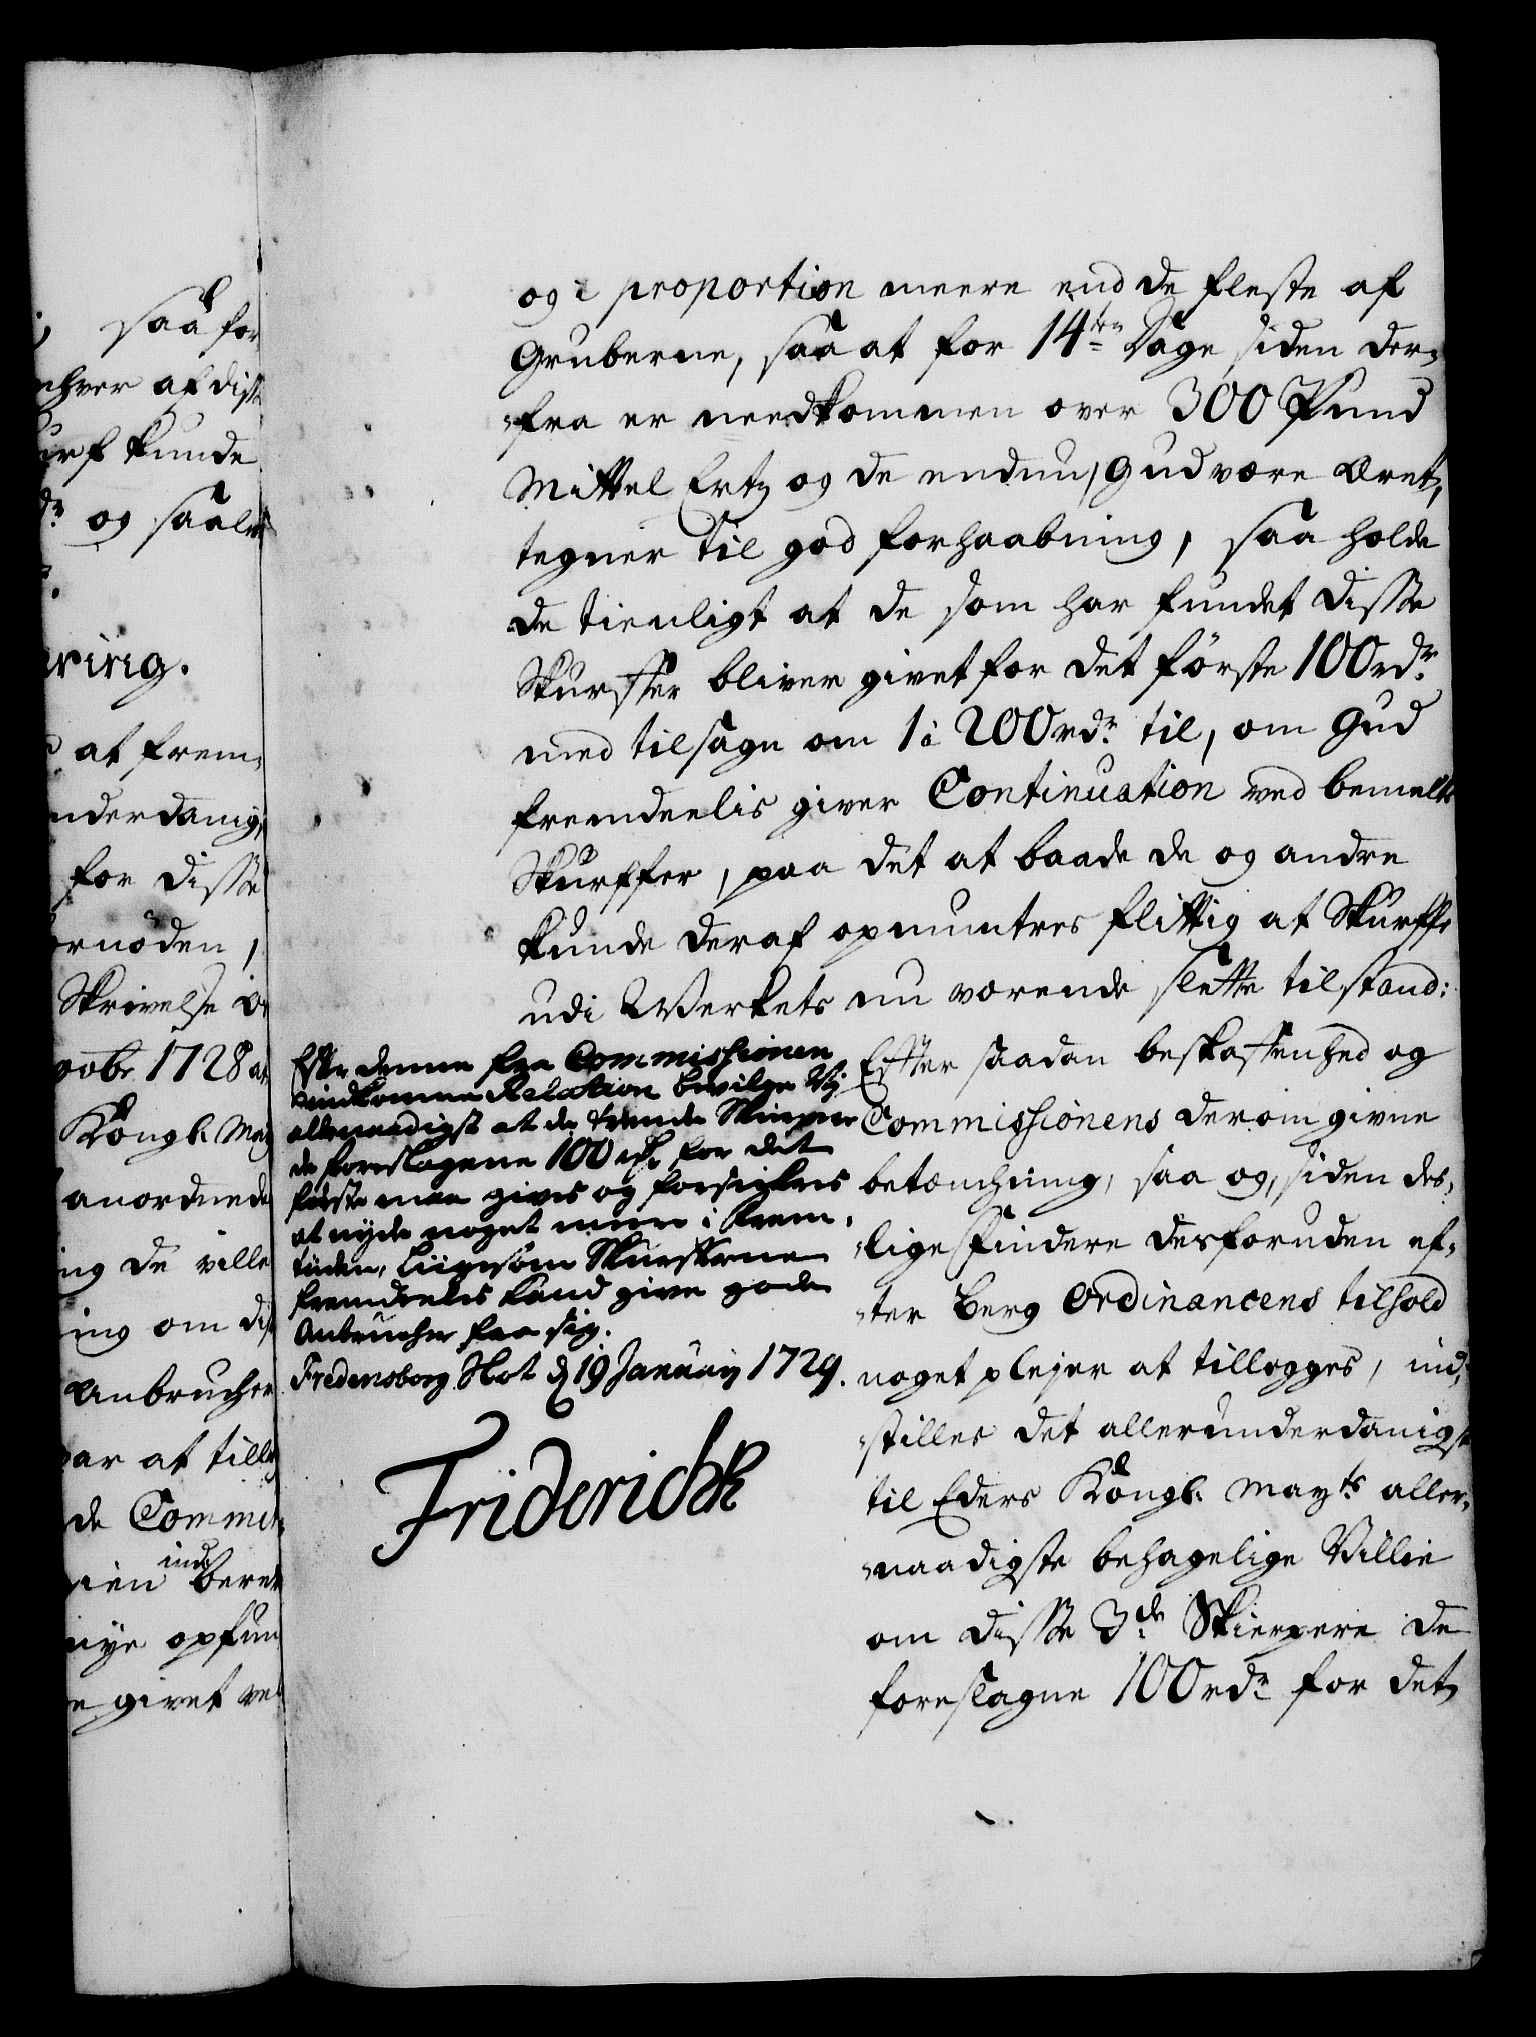 saa for
hver af diss
urf kunde
dr og saale
ring.
at frem,
nderdanig,
for disse
ornöden,
Skrivelse
vobr 1728 at
Kongl. May
anordnede
ng de ville
ing om dis
Anbrucher
var at till
de Commit,
ien ind beret
nye opfun
e givet ved
og i proportion meere end de fleste af
Gruberne, saa at for 14ten Dage siden der,
fra er nedkommen over 300 Pund
Mittel Ertz og de endnu, Gud være æret,
tegner til god forhaabning, saa holde
de tienligt at de som har fundet disse
Skurffer bliver givet for det förste 100 rdr.
med tilsagn om 1 à 200 rdr. til, om Gud
fremdeelis giver Continuation ved bemelte
Skurffer, paa det at baade de og andre
kunde deraf opmuntres flittig at Skurffe
udi Werkets nu værende slette tilstand:
Efter denne fra Commissionen
indkomne Relation bevilge Vy
allernaadigst at de trende Skierpere
de foreslagene 100 rdr for det
første maa gives og forsickres
at nyde noget mere i frem,
tiiden, liigesom Skurfferne
fremdeelis kand give gode
Anbrucher fra sig.
Fredensborg Slot d 19 January 1729.
Friderich R
Efter saadan beskaffenhed og
Commissionens derom givne
betænchning, saa og, siden des,
lige Findere desforuden ef,
ter Berg Ordinancens tilhold
noget plejer at tillegges, ind,
stilles det allerunderdanigst
til Eders Kongl. Mayts aller,
naadigste behagelige Villie
om disse 3de Skierpere de
foreslagne 100 rdr for det